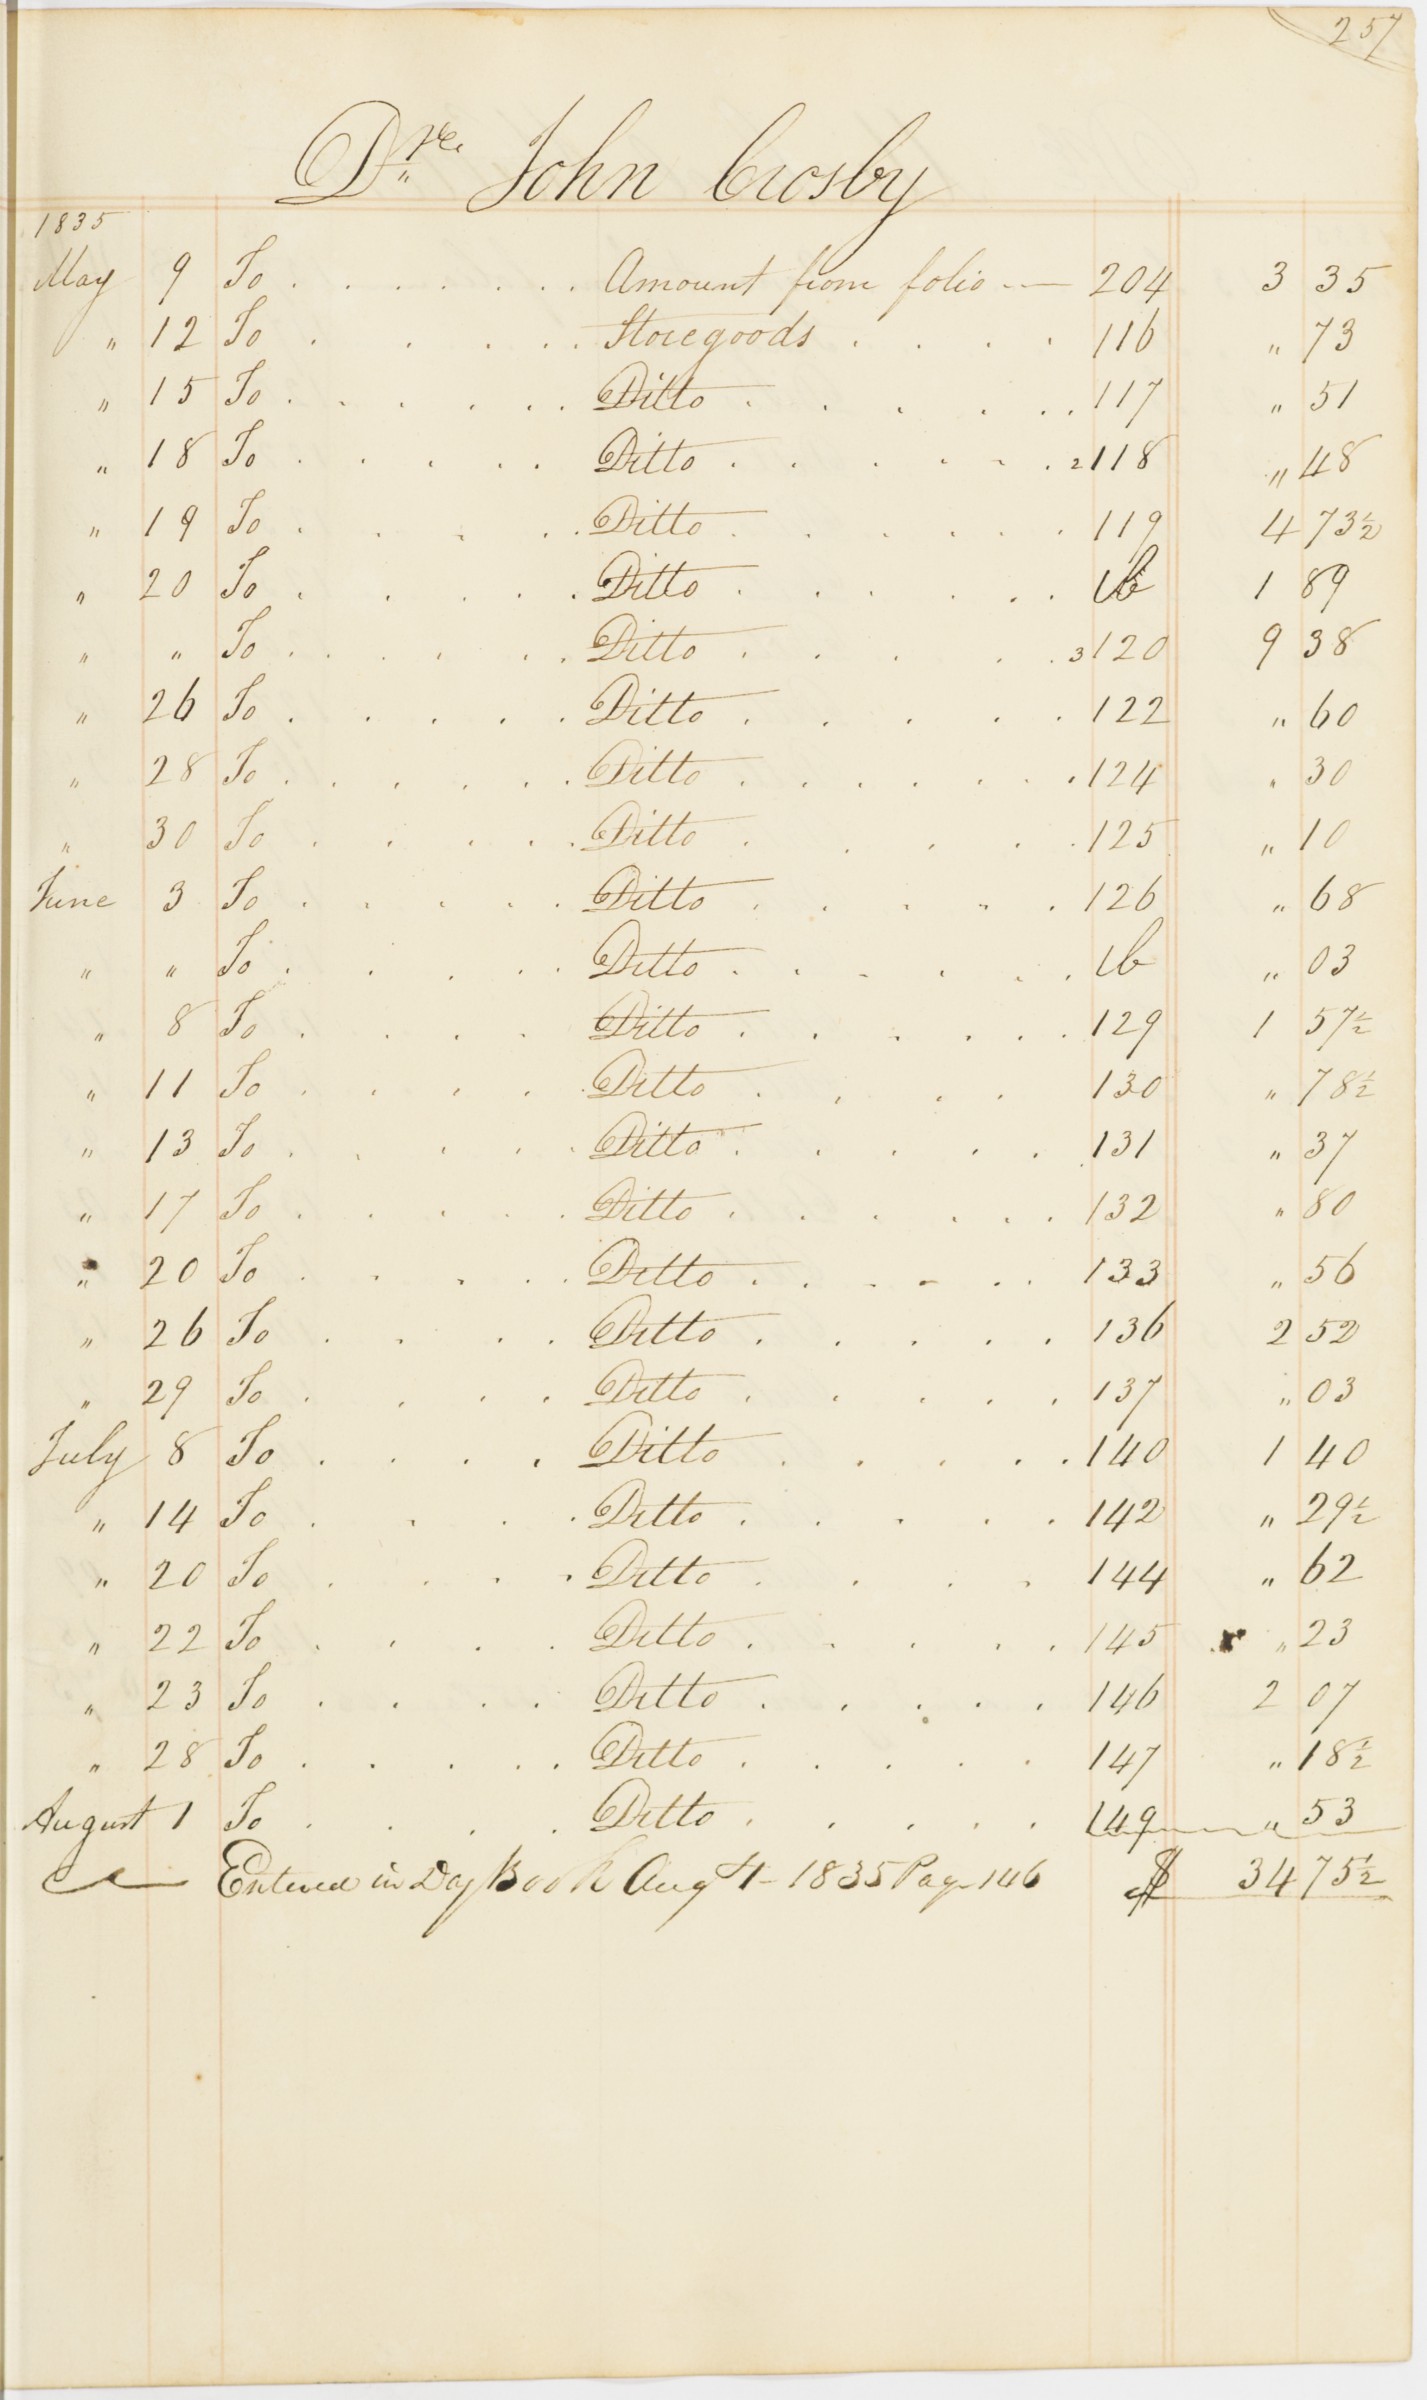 257
Dr. John Crosby
1835
May 9 To . . . . . . . Amount from folio -- 204 3 35
" 12 To . . . . . Storegoods . . . . 116 " 73
" 15 To . . . . . . Ditto . . . . . 117 " 51
" 18 To . . . . . Ditto . . . . . . 2118 " 48
" 19 To . . . . . Ditto . . . . . . 119 4 73½
" 20 To . . . . . Ditto . . . . . . Ib 1 89
" " To . . . . . . Ditto . . . . . 3120 9 38
" 26 To . . . . . Ditto . . . . . 122 " 60
" 28 To . . . . . . Ditto . . . . . . . 124 " 30
" 30 To . . . . . Ditto . . . . . 125 " 10
June 3 To . . . . . Ditto . . . . . 126 " 68
" " To . . . . . Ditto . . . . . . Ib " 03
" 8 To . . . . Ditto . . . . . . 129 1 57½
" 11 To . . . . . Ditto . . . . 130 " 78½
" 13 To . . . . . Ditto . . . . . 131 " 37
" 17 To . . . . . Ditto . . . . . . 132 " 80
" 20 To . . . . . Ditto . . . . . . 133 " 56
" 26 To . . . . Ditto . . . . . 136 2 52
" 29 To . . . . Ditto . . . . . 137 " 03
July 8 To . . . . Ditto . . . . . 140 1 40
" 14 To . . . . Ditto . . . . . 142 " 29½
" 20 To . . . . Ditto . . . . 144 " 62
" 22 To . . . . Ditto . . . . . 145 " 23
" 23 To . . . . Ditto . . . . . 146 2 07
" 28 To . . . . . Ditto . . . . . 147 " 18½
August 1 To . . . . Ditto . . . . . 149 " 53
Entered in Day Book Aug 4 - 1835 Page 146 $ 34 75½